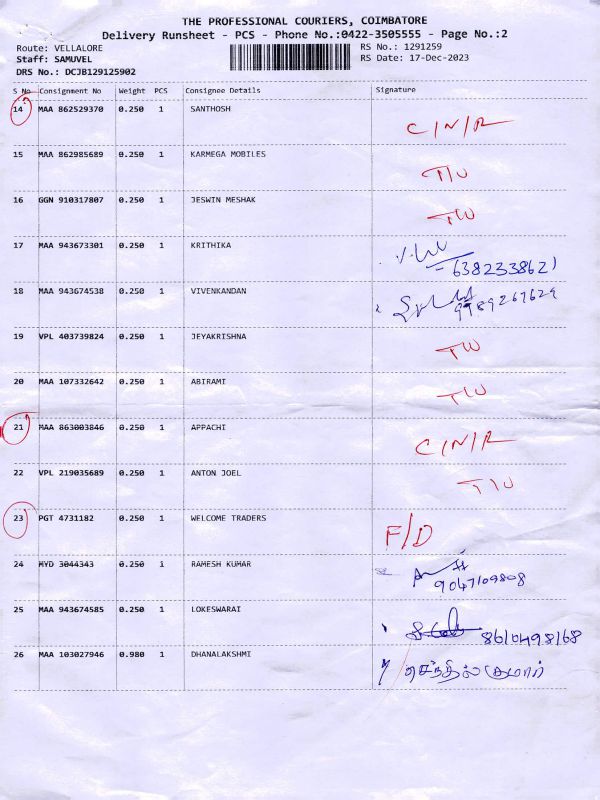 THE PROFESSIONAL COURIERS, COIMBATORE
Delivery Runsheet - PCS - Phone No.:0422-3505555 - Page No.:2
Route: VELLALORE
RS No.: 1291259
Staff: SAMUVEL
RS Date: 17-Dec-2023
DRS No.: DCJB129125902
S No Consignment No Weight PCS Consignee Details Signature
14 MAA 862529370 0.250 1 SANTHOSH C/N/R
15 MAA 862985689 0.250 1 KARMEGA MOBILES T/U
16 GGN 910317807 0.250 1 JESWIN MESHAK T/U
17 MAA 943673301 0.250 1 KRITHIKA
6382338621
18 MAA 943674538 0.250 1 VIVENKANDAN
9789267629
19 VPL 403739824 0.250 1 JEYAKRISHNA T/U
20 MAA 107332642 0.250 1 ABIRAMI T/U
21 MAA 863003846 0.250 1 APPACHI C/N/R
22 VPL 219035689 0.250 1 ANTON JOEL T/U
23 PGT 4731182 0.250 1 WELCOME TRADERS F/D
24 MYD 3044343 0.250 1 RAMESH KUMAR
9047109808
25 MAA 943674585 0.250 1 LOKESWARAI 8610498168
26 MAA 103027946 0.980 1 DHANALAKSHMI செந்தில் குமார்